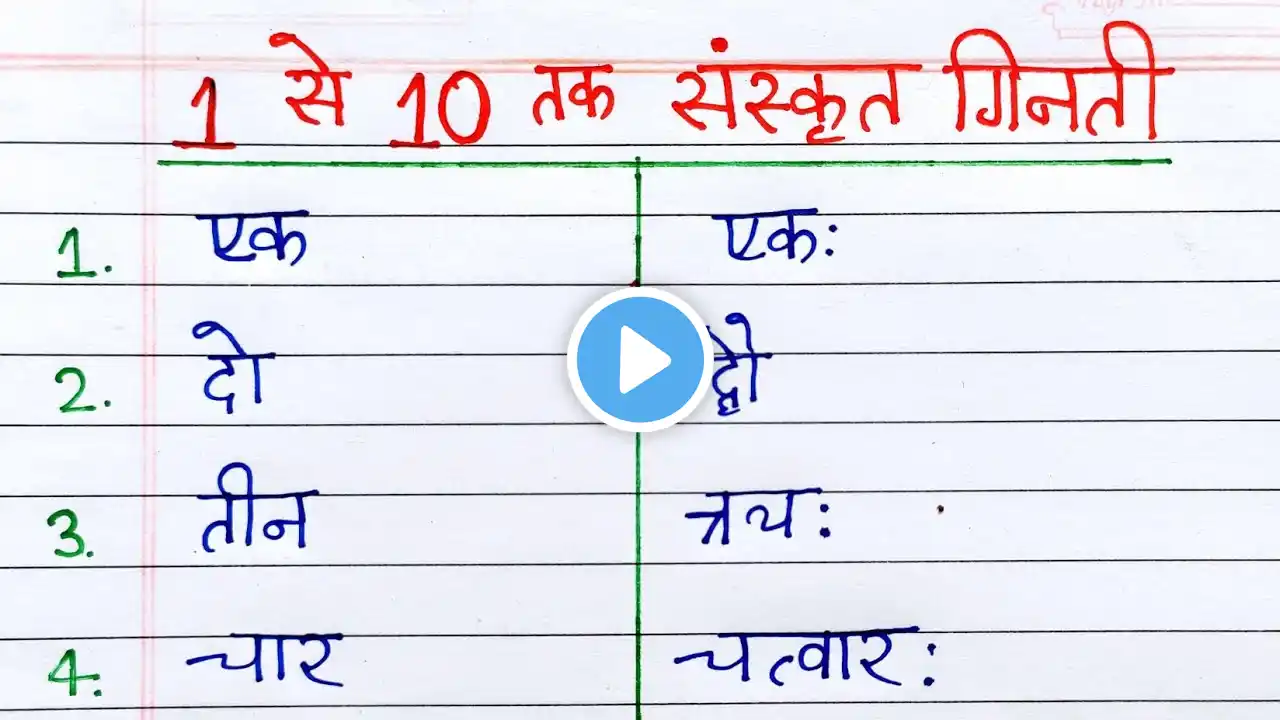 1 से 10 तक संस्कृत गिनती
1. एक एक:
2. दो द्वो
3. तीन त्रय:
4. चार चत्वार: